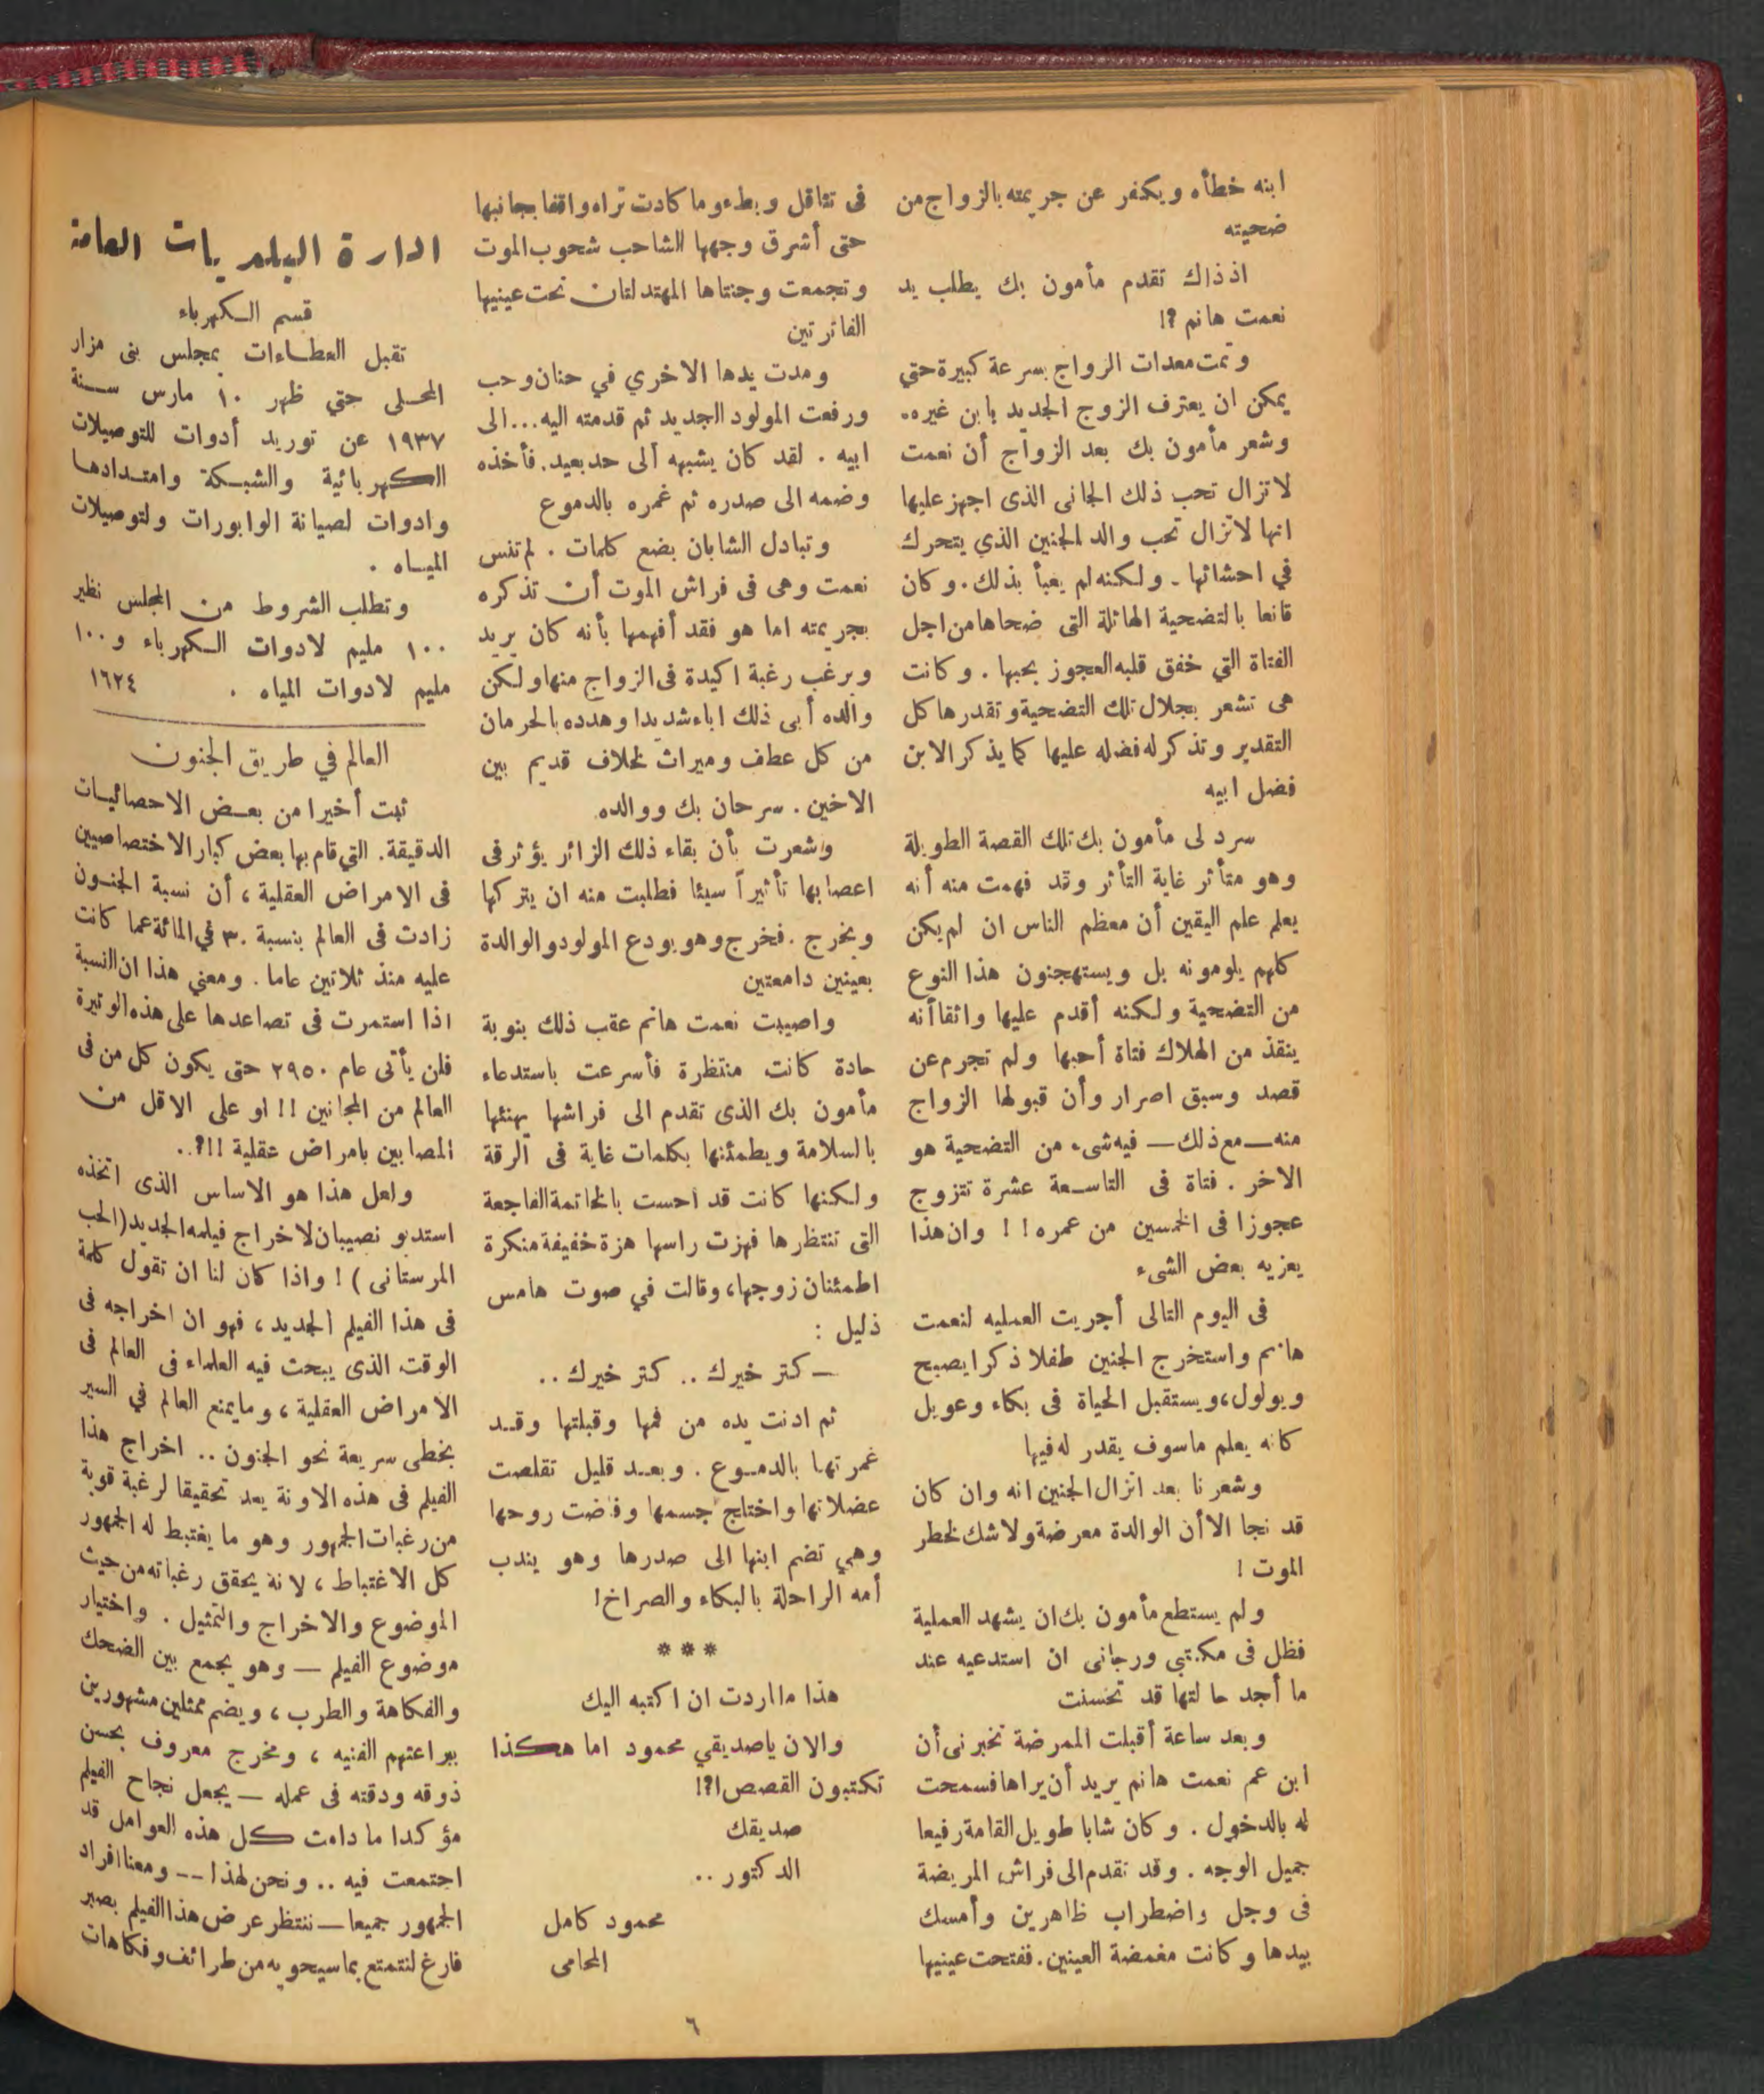 ابنه خطأه ويكفر عن جريمته بالزواج من
ضحيته
اذ ذاك تقدم مأمون بك يطلب يد
نعمت هانم ؟!
وتمت معدات الزواج بسرعة كبيرة حتي
يمكن ان يعترف الزوج الجديد بابن غيره.
وشعر مأمون بك بعد الزواج أن نعمت
لاتزال تحب ذلك الجانى الذى اجهز عليها
انها لاتزال تحب والد الجنين الذي يتحرك
في احشائها . ولكنه لم يعبأ بذلك . وكان
قانعا بالتضحية الهائلة التى ضحاها من اجل
الفتاة التي خفق قلبه العجوز بحبها . وكانت
هى تشعر بجلال تلك التضحية وتقدرها كل
التقدير وتذكر له فضله عليها كما يذكر الابن
فضل ابيه
سرد لى مأمون بك تلك القصة الطويلة
وهو متأثر غاية التأثر وقد فهمت منه أنه
يعلم علم اليقين أن معظم الناس ان لم يكن
كلهم يلومونه بل ويستهجنون هذا النوع
من التضحية ولكنه أقدم عليها واثقا أنه
ينقذ من الهلاك فتاة أحبها ولم تجرم عن
قصد وسبق اصرار وأن قبولها الزواج
منه — مع ذلك — فيه شىء من التضحية هو
الاخر . فتاة فى التاسعة عشرة تتزوج
عجوزا فى الخمسين من عمره ! ! وان هذا
يعزيه بعض الشىء
فى اليوم التالى أجريت العمليه لنعمت
هانم واستخرج الجنين طفلا ذكرا يصيح
ويولول، ويستقبل الحياة فى بكاء وعويل
كانه يعلم ماسوف يقدر له فيها
وشعرنا بعد انزال الجنين انه وان كان
قد نجا الا أن الوالدة معرضة ولاشك لخطر
الموت !
ولم يستطع مأمون بك ان يشهد العملية
فظل فى مكتبي ورجانى ان استدعيه عند
ما أجد حالتها قد تحسنت
وبعد ساعة أقبلت الممرضة تخبرنى أن
ابن عم نعمت هانم يريد أن يراها فسمحت
له بالدخول . وكان شابا طويل القامة رفيعا
جميل الوجه . وقد تقدم الى فراش المريضة
فى وجل واضطراب ظاهرين وأمسك
بيدها وكانت مغمضة العينين . ففتحت عينيها
فى تثاقل وبطء وما كادت تراه واقفا بجانبها
حتى أشرق وجهها الشاحب شحوب الموت
وتجمعت وجنتاها المهتدلتان تحت عينيها
الفاترتين
ومدت يدها الاخري في حنان وحب
ورفعت المولود الجديد ثم قدمته اليه ... الى
ابيه . لقد كان يشبهه الى حد بعيد . فأخذه
وضمه الى صدره ثم غمره بالدموع
وتبادل الشابان بضع كلمات . لم تنس
نعمت وهى فى فراش الموت أن تذكره
بجريمته اما هو فقد أفهمها بأنه كان يريد
ويرغب رغبة اكيدة فى الزواج منها ولكن
والده أبى ذلك اباء شديدا وهدده بالحرمان
من كل عطف وميراث لخلاف قديم بين
الاخين . سرحان بك ووالده
وشعرت بأن بقاء ذلك الزائر يؤثر فى
اعصابها تأثيراً سيئا فطلبت منه ان يتركها
ويخرج . فخرج وهو يودع المولود والوالدة
بعينين دامعتين
واصيبت نعمت هانم عقب ذلك بنوبة
حادة كانت منتظرة فأسرعت باستدعاء
مأمون بك الذى تقدم الى فراشها يهنئها
بالسلامة ويطمئنها بكلمات غاية فى الرقة
ولكنها كانت قد احست بالخاتمة الفاجعة
التى تنتظرها فهزت راسها هزة خفيفة منكرة
اطمئنان زوجها، وقالت في صوت هامس
ذليل :
— كتر خيرك .. كتر خيرك ..
ثم ادنت يده من فمها وقبلتها وقد
غمرتها بالدموع . وبعد قليل تقلصت
عضلاتها واختلج جسمها وفاضت روحها
وهي تضم ابنها الى صدرها وهو يندب
أمه الراحلة بالبكاء والصراخ !
***
هذا ما اردت ان اكتبه اليك
والان ياصديقي محمود اما هكذا
تكتبون القصص ا؟!
صديقك
الدكتور ..
محمود كامل
المحامى
ادارة البلديات العامة
قسم الكهرباء
تقبل العطاءات بمجلس بنى مزار
المحلى حتي ظهر ١٠ مارس سنة
١٩٣٧ عن توريد أدوات للتوصيلات
الكهربائية والشبكة وامتدادها
وادوات لصيانة الوابورات ولتوصيلات
المياه .
وتطلب الشروط من المجلس نظير
١٠٠ مليم لادوات الكهرباء و ١٠٠
مليم لادوات المياه . ١٦٢٤
العالم في طريق الجنون
ثبت أخيرا من بعض الاحصائيات
الدقيقة . التي قام بها بعض كبار الاختصاصيين
فى الامراض العقلية ، أن نسبة الجنون
زادت فى العالم بنسبة ٣٠ في المائة عما كانت
عليه منذ ثلاثين عاما . ومعني هذا ان النسبة
اذا استمرت فى تصاعدها على هذه الوتيرة
فلن يأتى عام ٢٩٥٠ حتى يكون كل من فى
العالم من المجانين !! او على الاقل من
المصابين بامراض عقلية !!؟..
ولعل هذا هو الاساس الذى اتخذه
استديو نصيبان لاخراج فيلمه الجديد (الحب
المرستانى ) ! واذا كان لنا ان تقول كلمة
فى هذا الفيلم الجديد ، فهو ان اخراجه فى
الوقت الذى يبحث فيه العلماء فى العالم فى
الامراض العقلية ، وما يمنع العالم في السير
بخطى سريعة نحو الجنون .. اخراج هذا
الفيلم فى هذه الاونة يعد تحقيقا لرغبة قوية
من رغبات الجمهور وهو ما يغتبط له الجمهور
كل الاغتباط ، لانه يحقق رغباته من حيث
الموضوع والاخراج والتمثيل . واختيار
موضوع الفيلم — وهو يجمع بين الضحك
والفكاهة والطرب ، ويضم ممثلين مشهورين
ببراعتهم الفنيه ، ومخرج معروف بحسن
ذوقه ودقته فى عمله — يجعل نجاح الفيلم
مؤكدا ما دامت كل هذه العوامل قد
اجتمعت فيه .. ونحن لهذا -- ومعنا افراد
الجمهور جميعا — ننتظر عرض هذا الفيلم بصبر
فارغ لنتمتع بما سيحويه من طرائف وفكاهات
٦